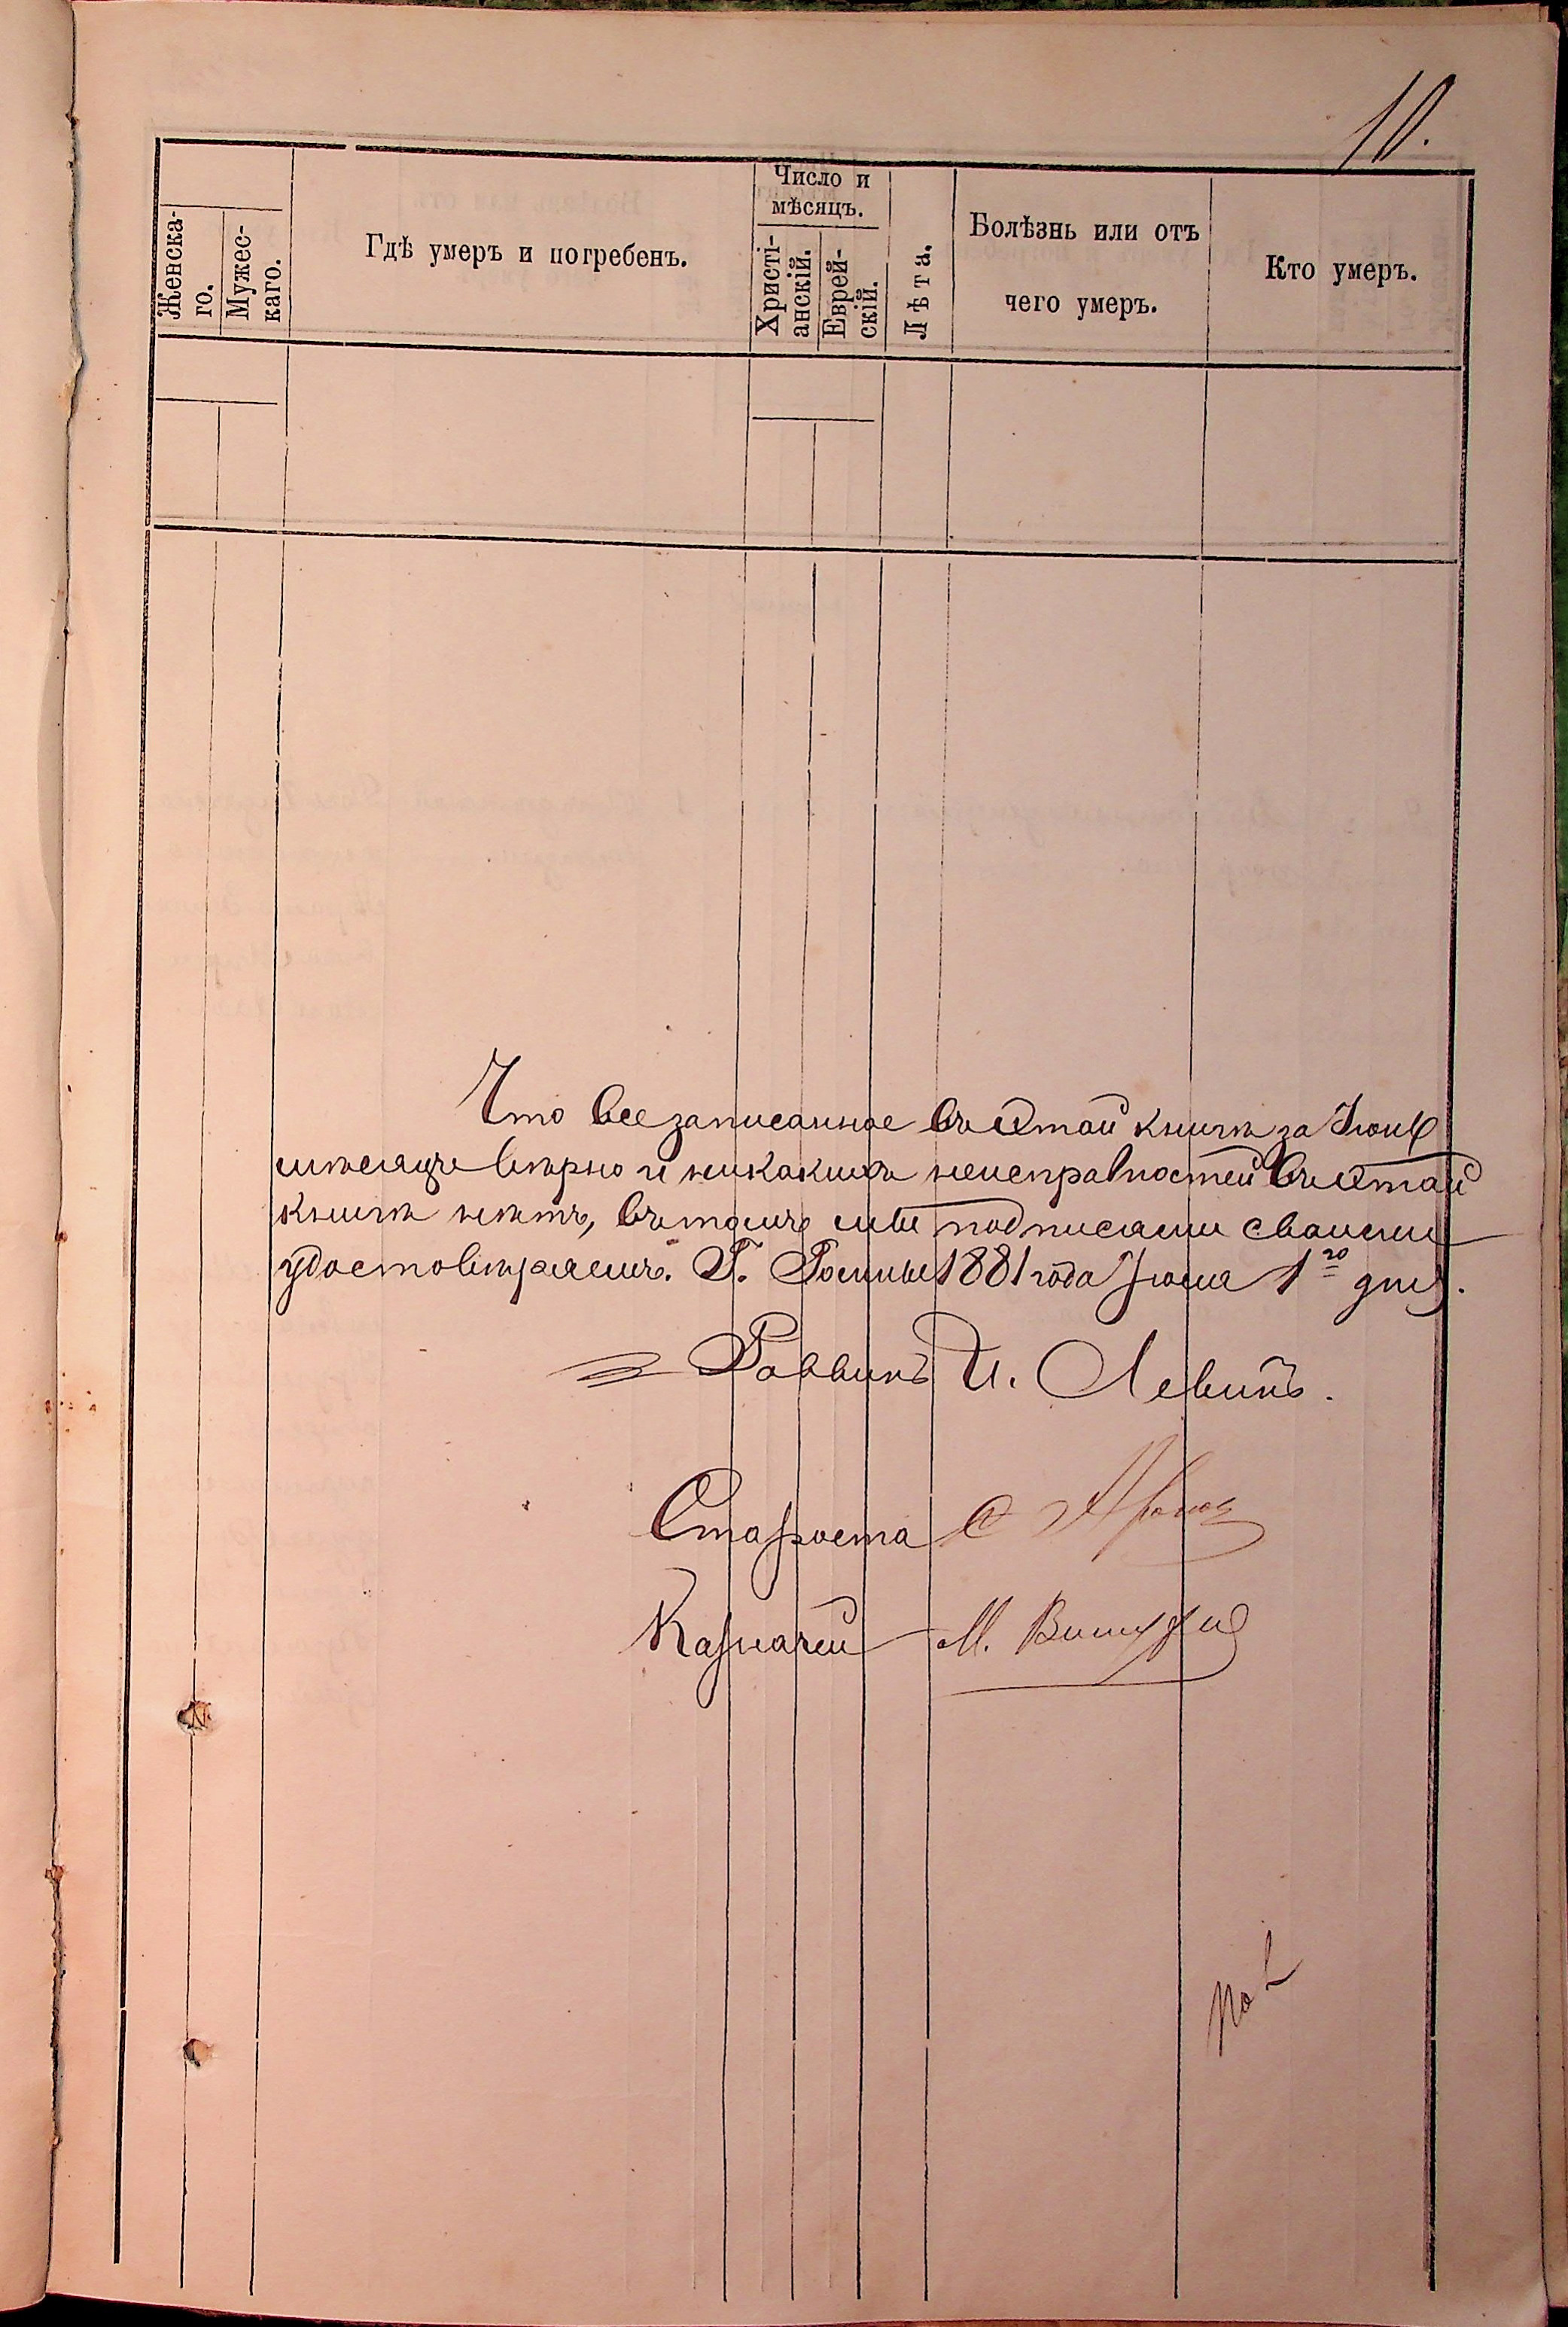 10.
Женска-
го.
Мужес-
каго.
Гдѣ умеръ и погребенъ.
Число и
мѣсяцъ.
Христі-
анскій.
Еврей-
скій.
Лѣта.
Болѣзнь или отъ
чего умеръ.
Кто умеръ.
Что все записанное въ этой книгѣ за Іюнь
мѣсяцъ вѣрно и никакихъ неисправностей въ этой
книгѣ нѣтъ, въ томъ мы подписами своими
удостовѣряемъ. Г. Россіены 1881 года Іюля 1го дня.
Раввинъ И. Левинъ.
Староста С
Казначей М.